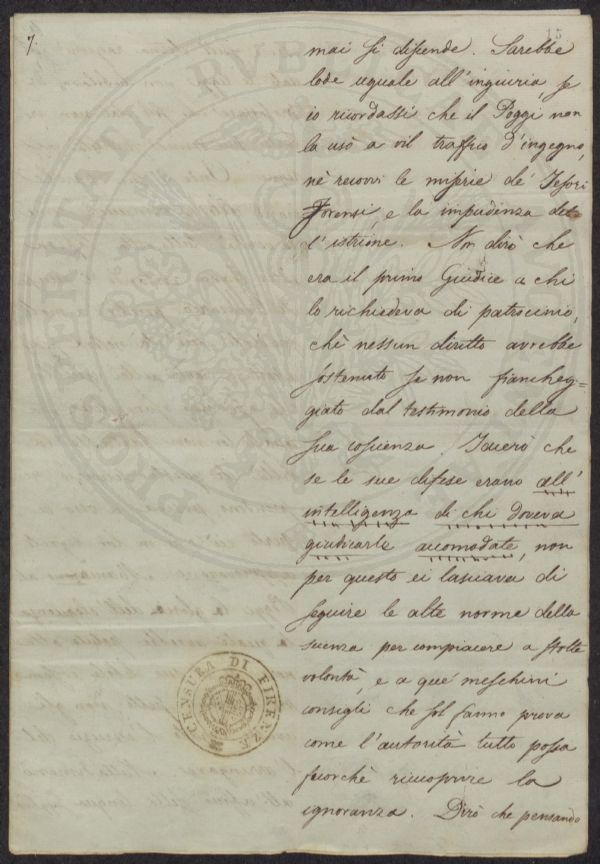 7.
15
mai si discende. Sarebbe
lode uguale all'ingiuria, se
io ricordassi che il Poggi non
la usò a vil traffico d'ingegno,
nè recovvi le miserie de' Tesori
Forensi, e la impudenza del
l'istrione. Non dirò che
era il primo Giudice a chi
lo richiedeva di patrocinio,
chè nessun diritto avrebbe
sostenuto se non fiancheg=
giato dal testimonio della
sua coscienza. Tacerò che
se le sue difese erano all'
intelligenza di chi doveva
giudicarle accomodate, non
per questo ei lasciava di
seguire le alte norme della
scienza per compiacere a stolte
volontà, e a que' meschini
consigli che sol fanno prova
come l'autorità tutto possa
fuorchè ricuoprire la
ignoranza. Dirò che pensando
CENSURA DI FIRENZE